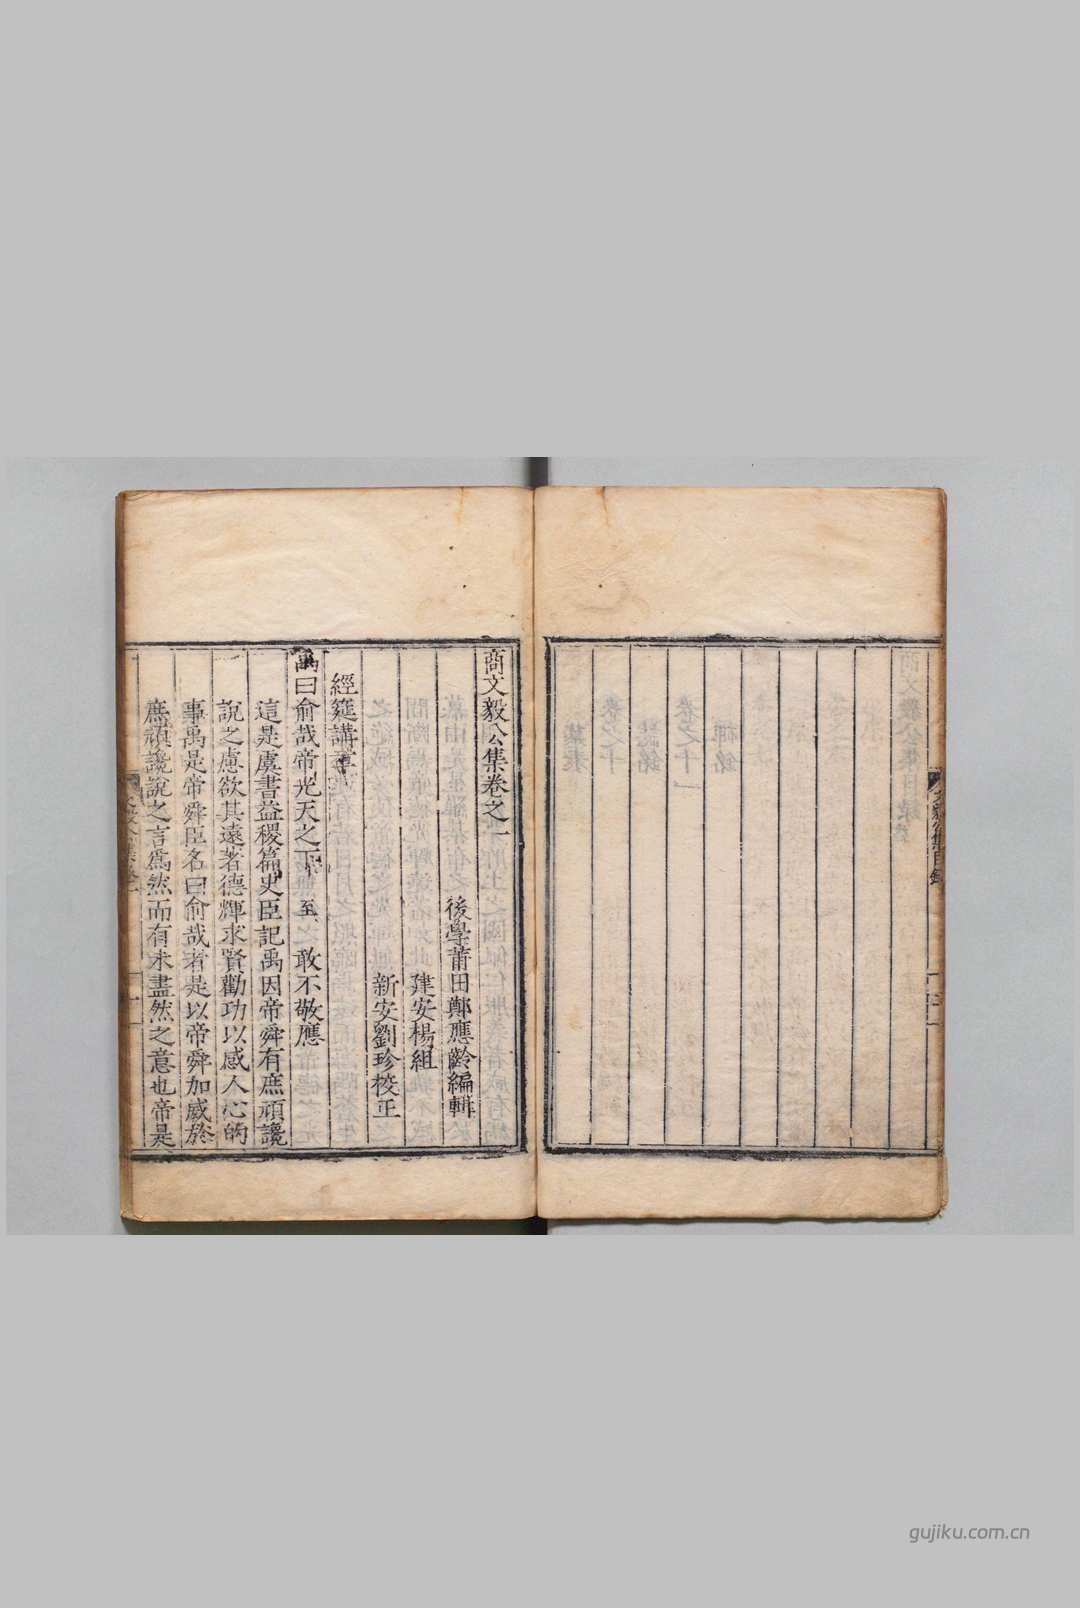 商文毅公集卷之一
後學莆田鄭應齡編輯
建安楊組
新安劉珍校正
經筵講章
禹曰俞哉帝光天之下至敢不敬應
這是虞書益稷篇史臣記禹因帝舜有庶頑讒
說之慮欲其遠著德輝求賢勸功以感人心的
事禹是帝舜臣名曰俞哉者是以帝舜加威於
庶頑讒說之言爲然而有未盡然之意也帝是
gujiku.com.cn